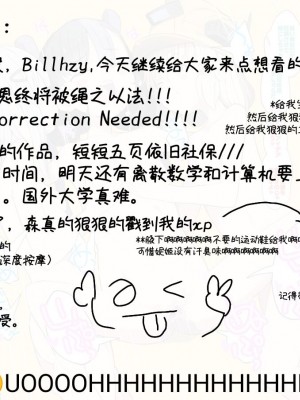 ：
，Billhzy,今天继续给大家来点想看的
恶终将被绳之以法!!!
orrection Needed!!!!
*给我
然后给我狠
然后给我狠狠的
的作品，短短五页依旧社保///
时间，明天还有离散数学和计算机要上
。国外大学真难。
，森真的狠狠的戳到我的xp
的
深度按摩）
**磕下啊啊啊啊啊啊不要的运动鞋给我
可惜妮姬没有汗臭味啊啊啊啊啊啊啊
记得
受。
UOOOOHHHHHHHHHHHHHH